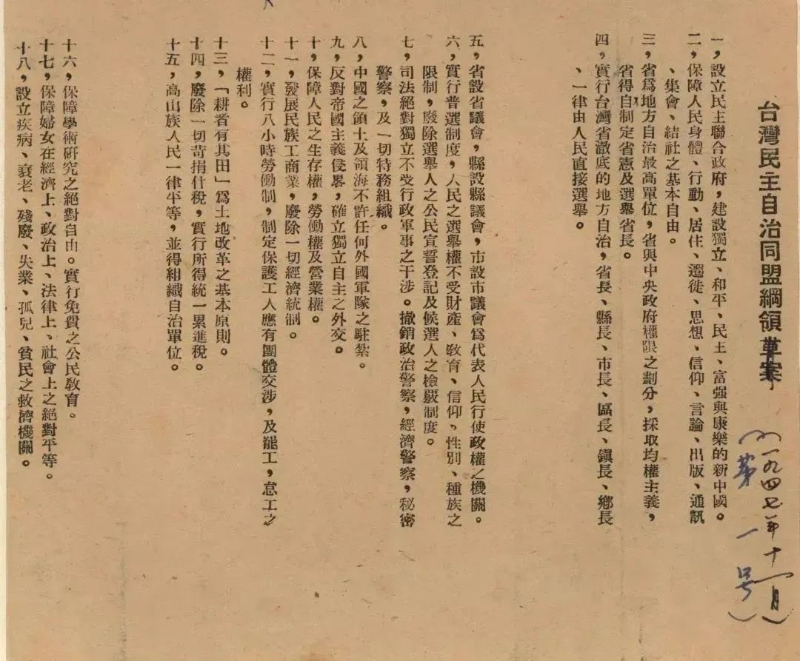 台灣民主自治同盟綱領草案
(一九四七年十一月)
(第一号)
一,設立民主聯合政府,建設獨立、和平、民主、富强與康樂的新中國。
二,保障人民身體、行動、居住、遷徙、思想、信仰、言論、出版、通訊
、集會、結社之基本自由。
三,省爲地方自治最高單位,省與中央政府權限之劃分,採取均權主義,
省得自制定省憲及選舉省長。
四,實行台灣省澈底的地方自治,省長、縣長、市長、區長、鎮長、鄉長
、一律由人民直接選舉。
五,省設省議會,縣設縣議會,市設市議會爲代表人民行使政權之機關。
六,實行普選制度,人民之選舉權不受財產、敎育、信仰、性別、種族之
限制,廢除選舉人之公民宣誓登記及候選人之檢覈制度。
七,司法絕對獨立不受行政軍事之干涉。撤銷政治警察,經濟警察,秘密
警察,及一切特務組織。
八,中國之領土及領海不許任何外國軍隊之駐紮。
九,反對帝國主義侵畧,確立獨立自主之外交。
十,保障人民之生存權,勞働權及營業權。
十一,發展民族工商業,廢除一切經濟統制。
十二,實行八小時勞働制,制定保護工人應有團體交涉,及罷工,怠工之
權利。
十三,「耕者有其田」爲土地改革之基本原則。
十四,廢除一切苛捐什稅,實行所得統一累進稅。
十五,高山族人民一律平等,並得組織自治單位。
十六,保障學術研究之絕對自由。實行免費之公民敎育。
十七,保障婦女在經濟上、政治上、法律上、社會上之絕對平等。
十八,設立疾病、衰老、殘廢、失業、孤兒、貧民之救濟機關。